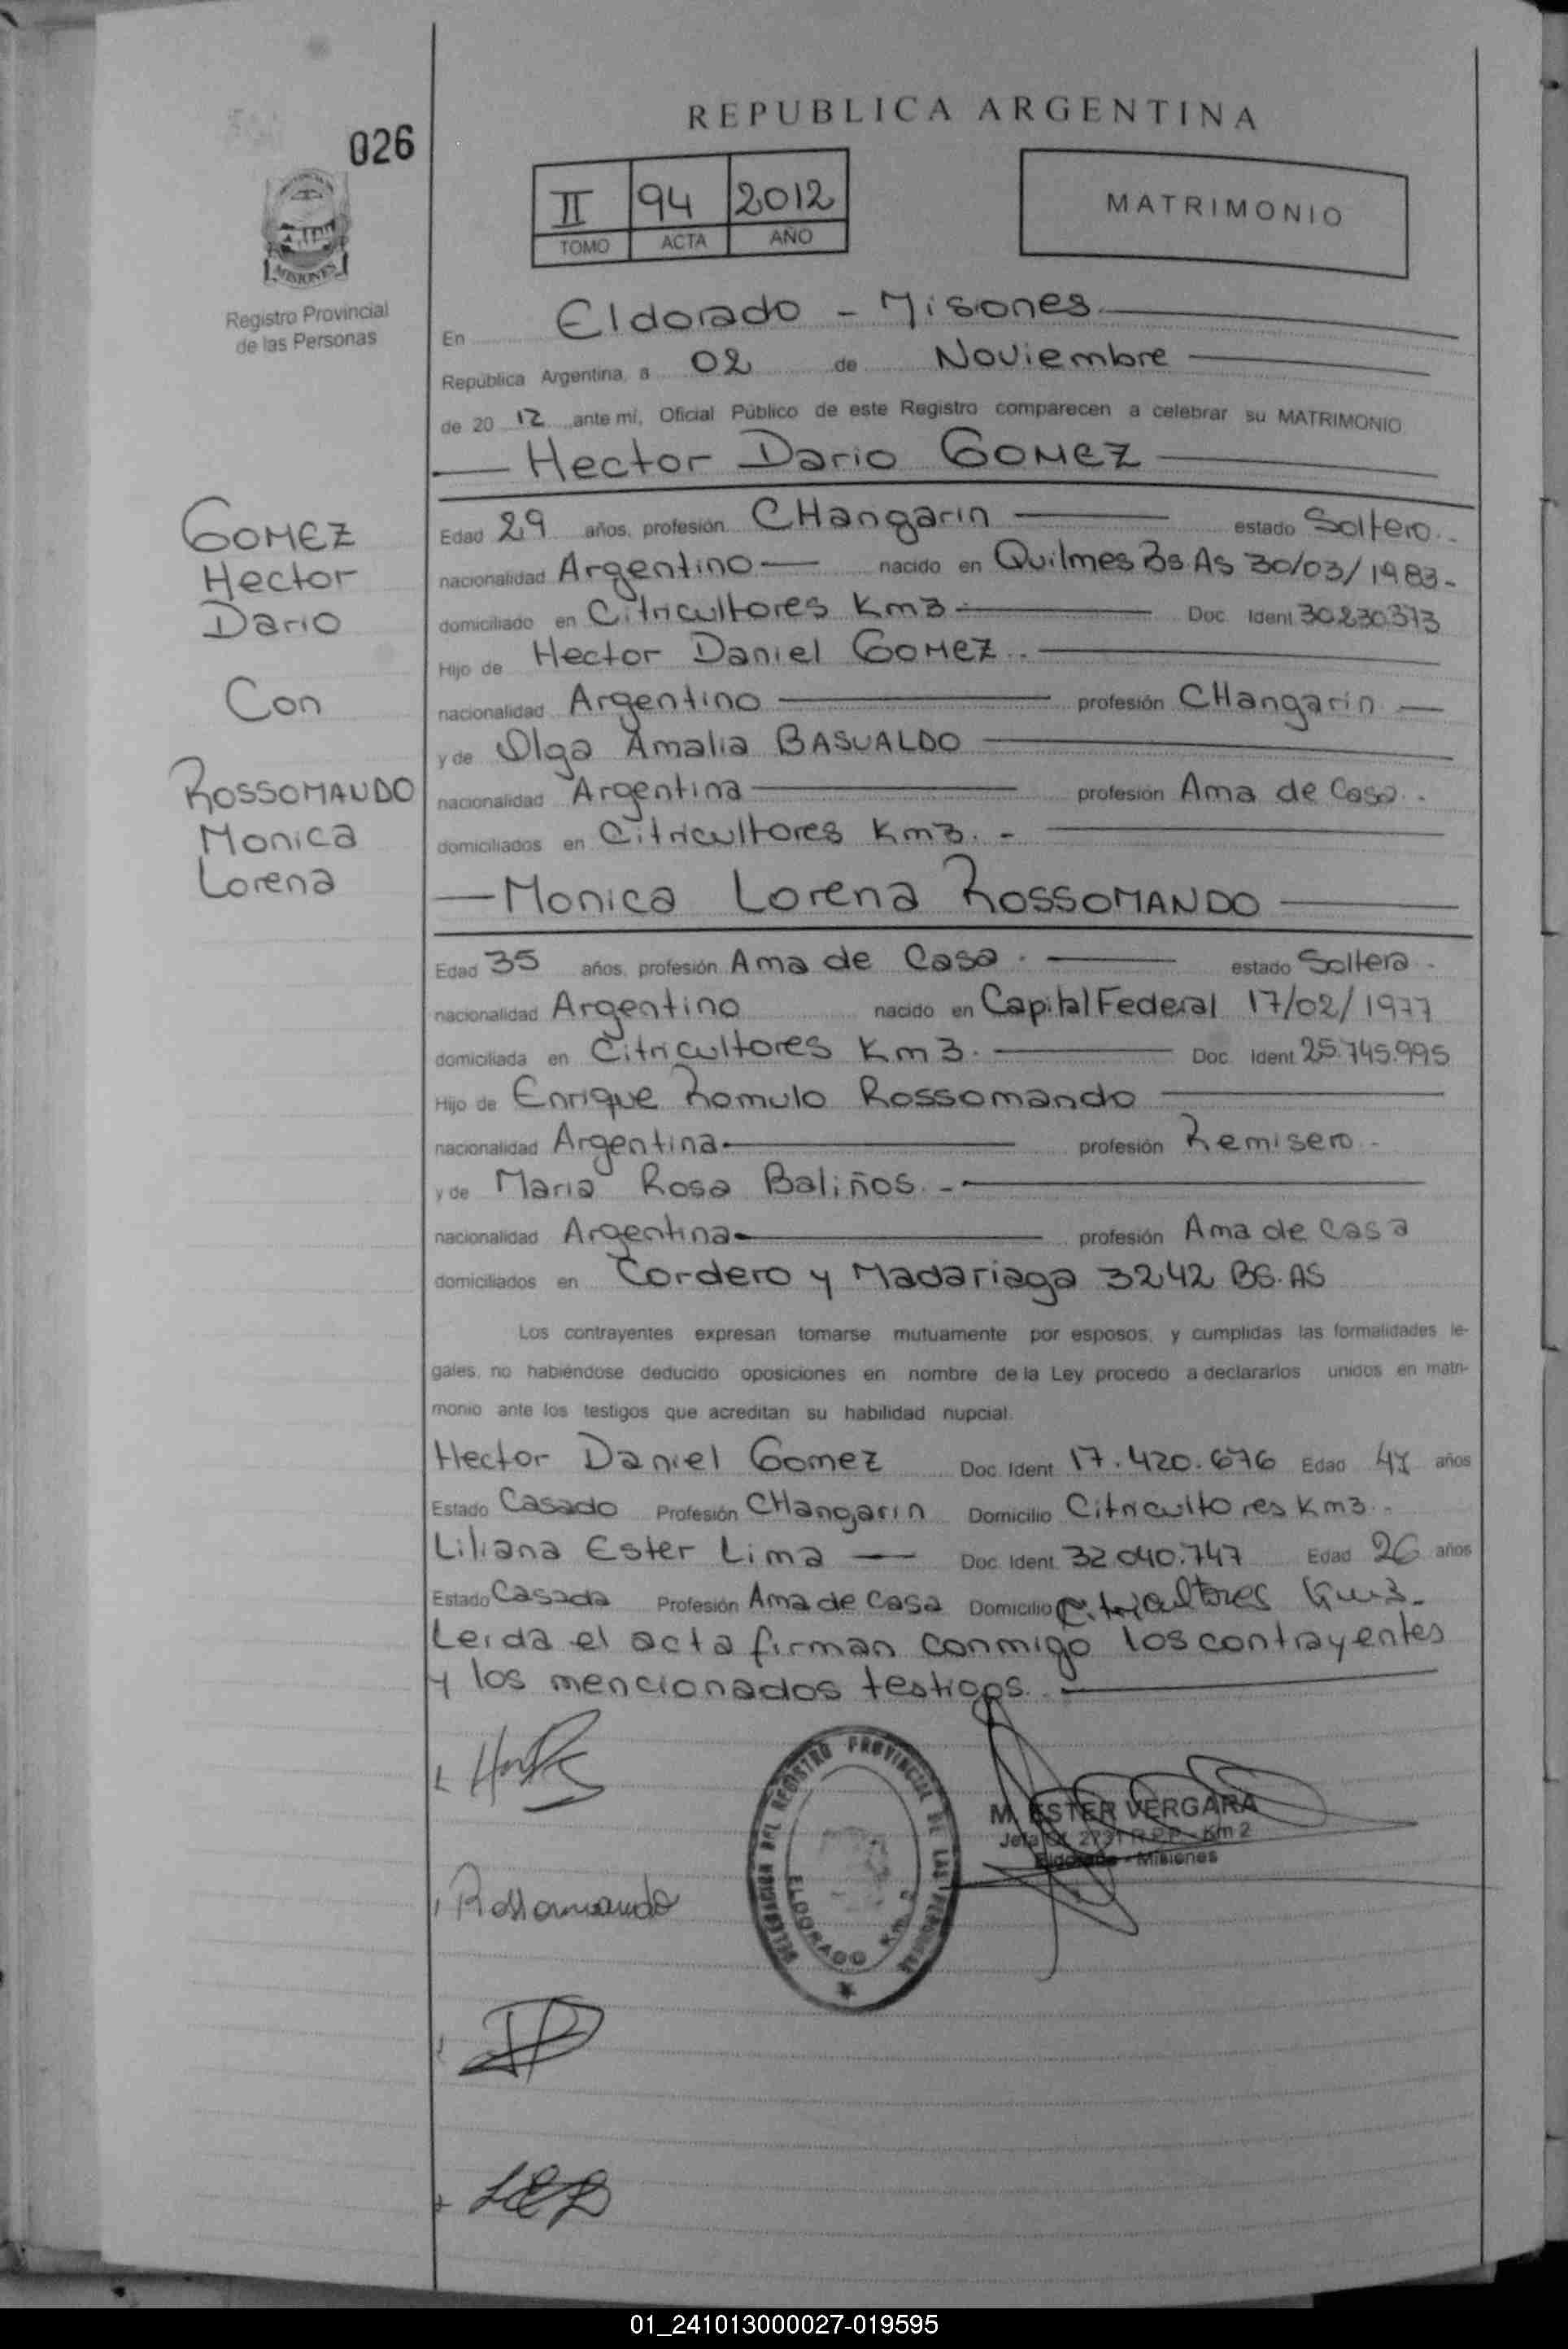 REPUBLICA ARGENTINA
026
II 94 2012
TOMO ACTA AÑO
MATRIMONIO
MISIONES
Registro Provincial
de las Personas
En Eldorado - Misones
República Argentina, a 02 de Noviembre
de 20 12 ante mí, Oficial Público de este Registro comparecen a celebrar su MATRIMONIO
Hector Dario GOMEZ
GOMEZ
Hector
Dario
Con
ROSSOMANDO
Monica
Lorena
Edad 29 años, profesión CHangarin estado Soltero
nacionalidad Argentino nacido en Quilmes Bs.As 30/03/1983-
domiciliado en Citricultores Km3 Doc. Ident 30.230.373
Hijo de Hector Daniel GOMEZ
nacionalidad Argentino profesión CHangarin
y de Olga Amalia BASUALDO
nacionalidad Argentina profesión Ama de Casa
domiciliados en Citricultores Km3. -
Monica Lorena ROSSOMANDO
Edad 35 años, profesión Ama de Casa. estado Soltera
nacionalidad Argentino nacido en Capital Federal 17/02/1977
domiciliada en Citricultores Km3. Doc. Ident 25.745.995
Hijo de Enrique Romulo Rossomando
nacionalidad Argentina profesión Remisero -
y de Maria Rosa Baliños. -
nacionalidad Argentina profesión Ama de casa
domiciliados en Cordero y Madariaga 3242 BS.AS
Los contrayentes expresan tomarse mutuamente por esposos, y cumplidas las formalidades le-
gales, no habiéndose deducido oposiciones en nombre de la Ley procedo a declararlos unidos en matri-
monio ante los testigos que acreditan su habilidad nupcial.
Hector Daniel Gomez Doc. Ident 17.420.676 Edad 47 años
Estado Casado Profesión CHangarin Domicilio Citricultores Km3.
Liliana Ester Lima Doc. Ident. 32.040.747 Edad 26 años
Estado Casada Profesión Ama de casa Domicilio Citricultores Km3.
Leida el acta firman conmigo los contrayentes
y los mencionados testigos.
DELEGACION DEL REGISTRO PROVINCIAL DE LAS PERSONAS
ELDORADO Km 2
M. ESTER VERGARA
Jefa Of. 2731 R.P.P. - Km 2
Eldorado - Misiones
Rossomando
01_241013000027-019595